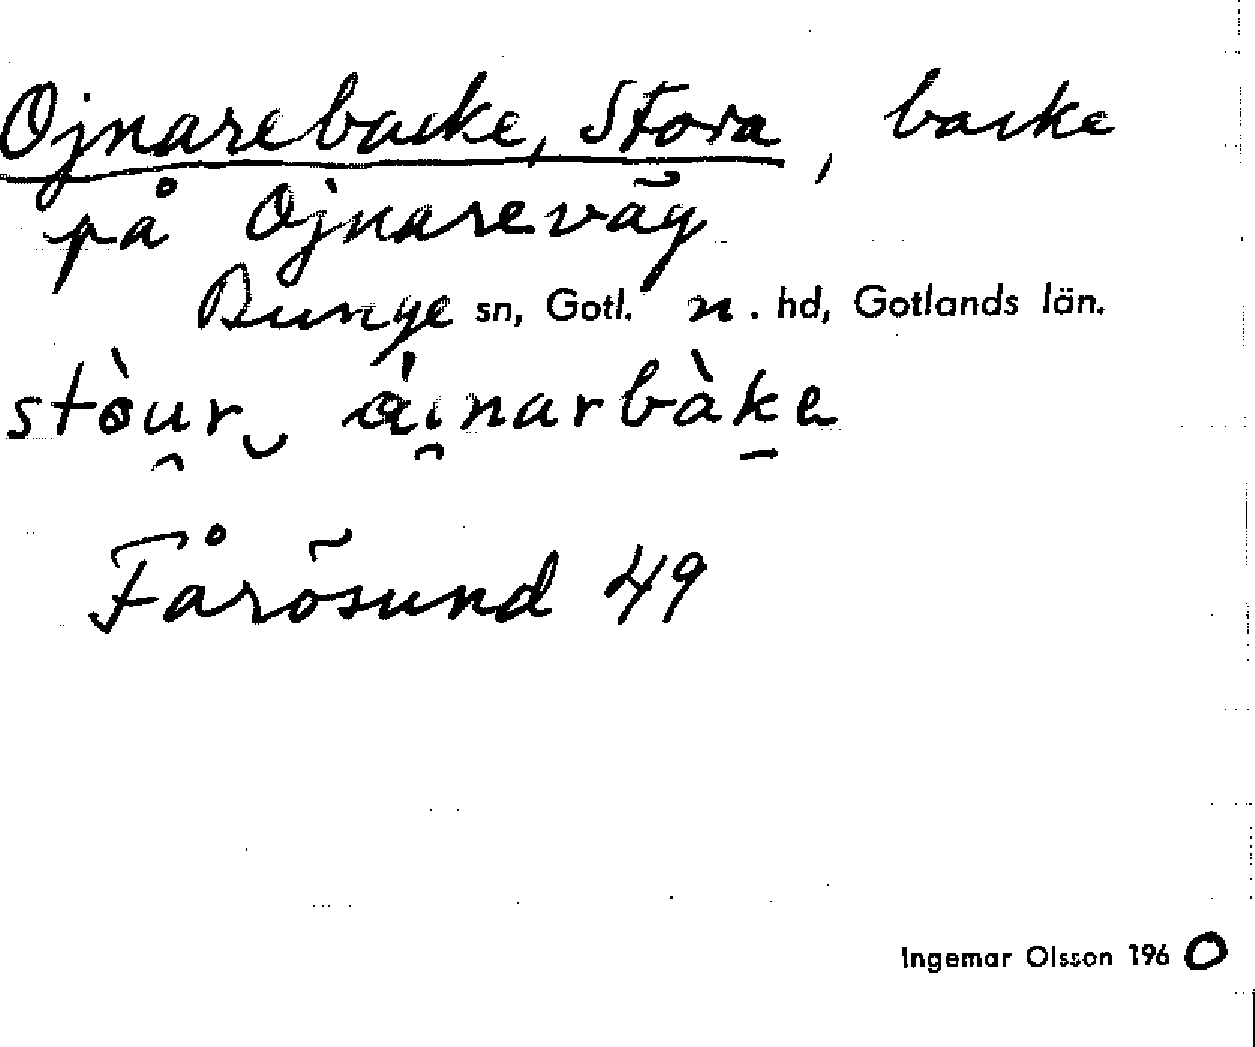 Ojnarebacke, Stora, backe
på Ojnareväg
Bunge sn, Gotl. n. hd, Gotlands län.
stòu̯r‿ ài̯narbàk̠e
Fårösund 49
Ingemar Olsson 1960